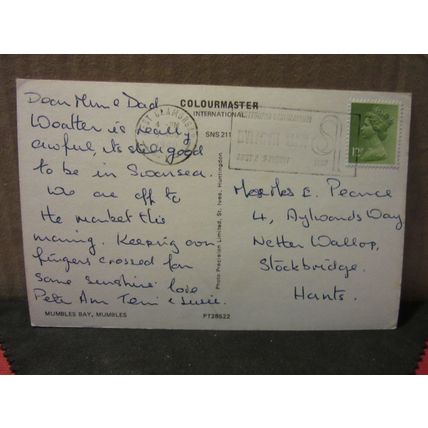 Dear Mum & Dad
Weather is really
awful, its still good
to be in Swansea.
We are off to
the market this
morning. Keeping our
fingers crossed for
some sunshine love
Peter Ann Terri & Susie.
MUMBLES BAY, MUMBLES
COLOURMASTER
INTERNATIONAL
SNS 211
Photo Precision Limited, St. Ives, Huntingdon
PT28622
GLAMORGAN
E. Pearce
4, Aylwards Way
Netter Wallop,
Stockbridge.
Hants.